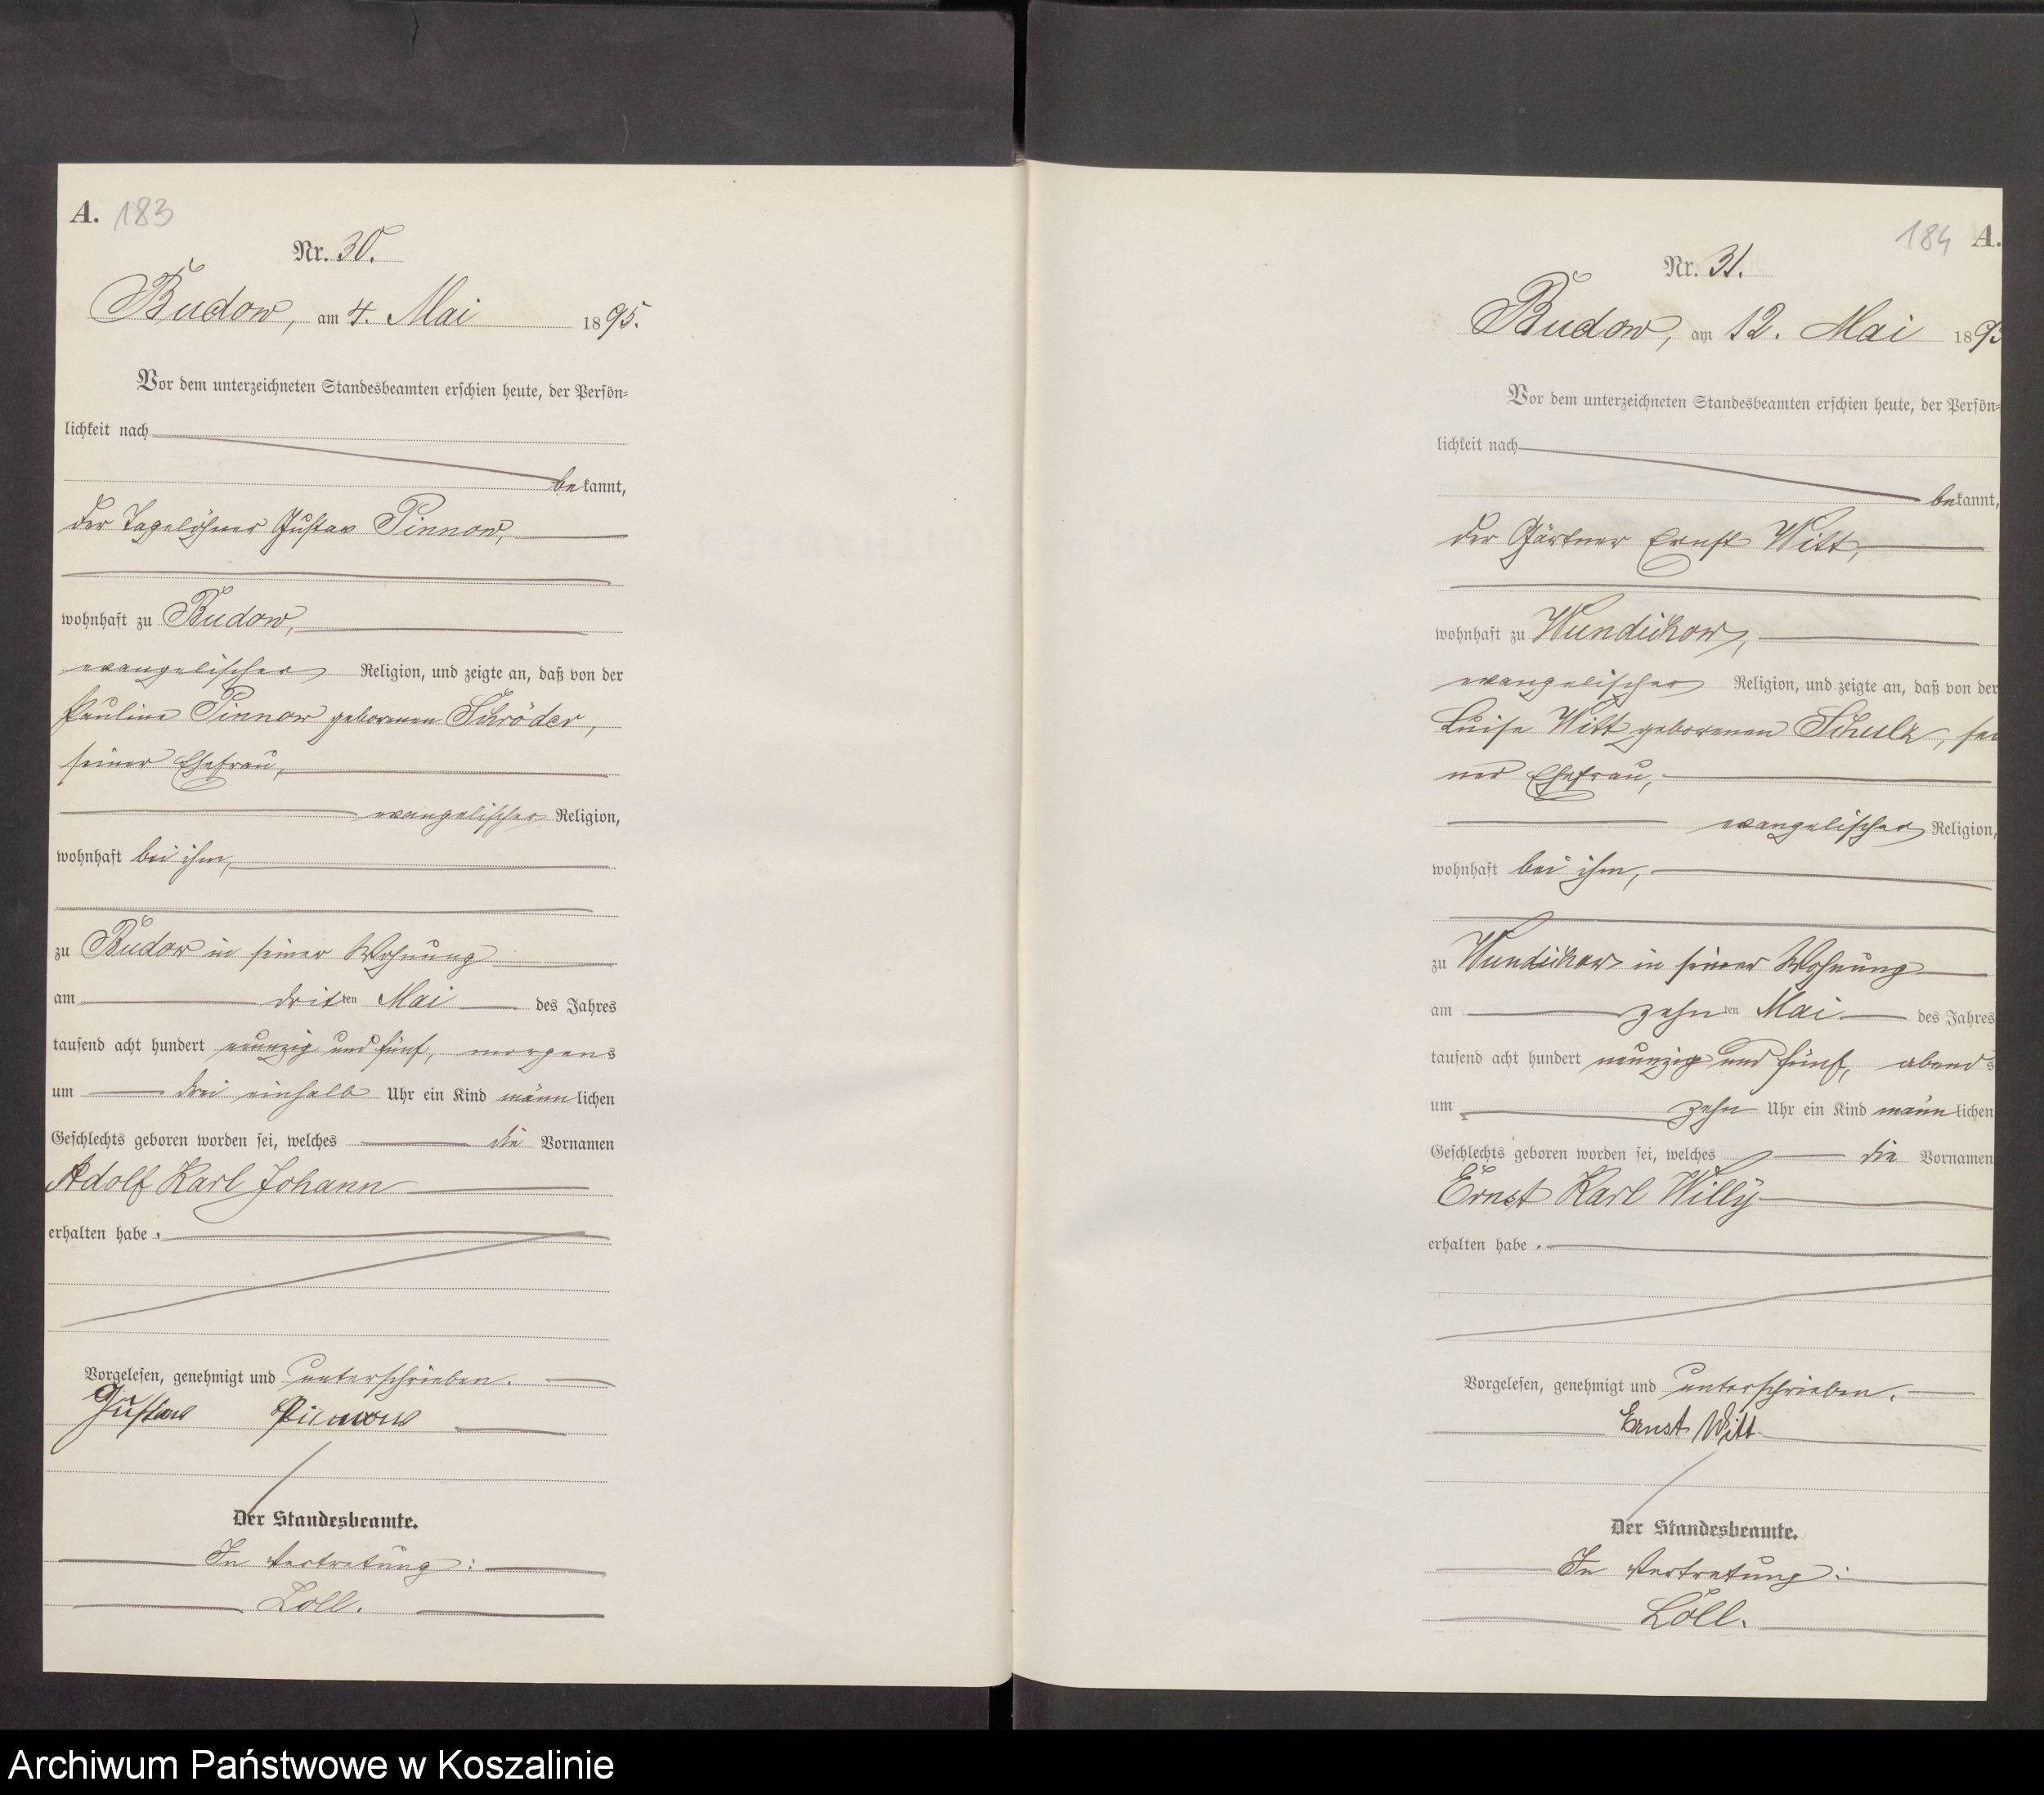 A. 183
Nr. 30.
Budow, am 4. Mai 1895.
Vor dem unterzeichneten Standesbeamten erschien heute, der Persön-
lichkeit nach
bekannt,
der Tagelöhner Gustav Pinnow,
wohnhaft zu Budow,
evangelischer Religion, und zeigte an, daß von der
Pauline Pinnow geborenen Schröder,
seiner Ehefrau,
evangelischer Religion,
wohnhaft bei ihm,
zu Budow in seiner Wohnung
am dritten Mai des Jahres
tausend acht hundert neunzig und fünf, morgens
um drei einhalb Uhr ein Kind männlichen
Geschlechts geboren worden sei, welches die Vornamen
Adolf Karl Johann
erhalten habe.
Vorgelesen, genehmigt und unterschrieben.
Gustav Pinnow
Der Standesbeamte.
In Vertretung:
Loll.
184 A.
Nr. 31.
Budow, am 12. Mai 189
Vor dem unterzeichneten Standesbeamten erschien heute, der Persön-
lichkeit nach
bekannt,
der Gärtner Ernst Witt,
wohnhaft zu Wundichow,
evangelischer Religion, und zeigte an, daß von der
Luise Witt geborenen Schulz, sei
ner Ehefrau,
evangelischer Religion,
wohnhaft bei ihm,
zu Wundichow in seiner Wohnung
am zehnten Mai des Jahres
tausend acht hundert neunzig und fünf, abends
um zehn Uhr ein Kind männlichen
Geschlechts geboren worden sei, welches die Vornamen
Ernst Karl Willy
erhalten habe.
Vorgelesen, genehmigt und unterschrieben.
Ernst Witt
Der Standesbeamte.
In Vertretung:
Loll.
Archiwum Państwowe w Koszalinie